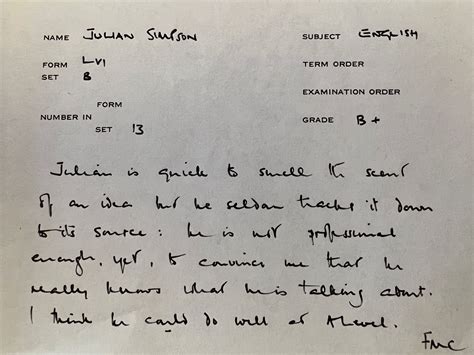 NAME JULIAN SIMPSON SUBJECT ENGLISH
FORM LVI TERM ORDER
SET B
EXAMINATION ORDER
FORM
NUMBER IN
SET 13 GRADE B+
Julian is quick to smell the scent
of an idea but he seldom tracks it down
to its source: he is not professional
enough, yet, to convince me that he
really knows what he is talking about.
I think he could do well at A level.
FMC